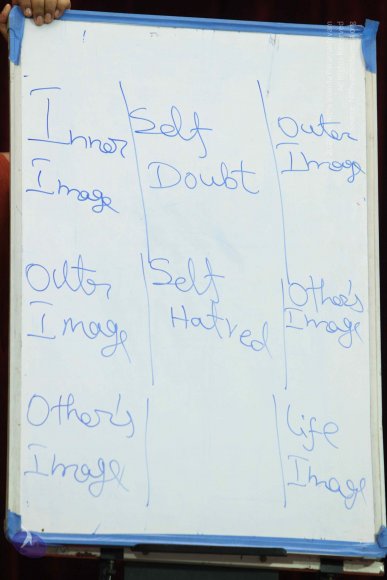 Inner
Image
Self
Doubt
Outer
Image
Outer
Image
Self
Hatred
Other's
Image
Other's
Image
Life
Image